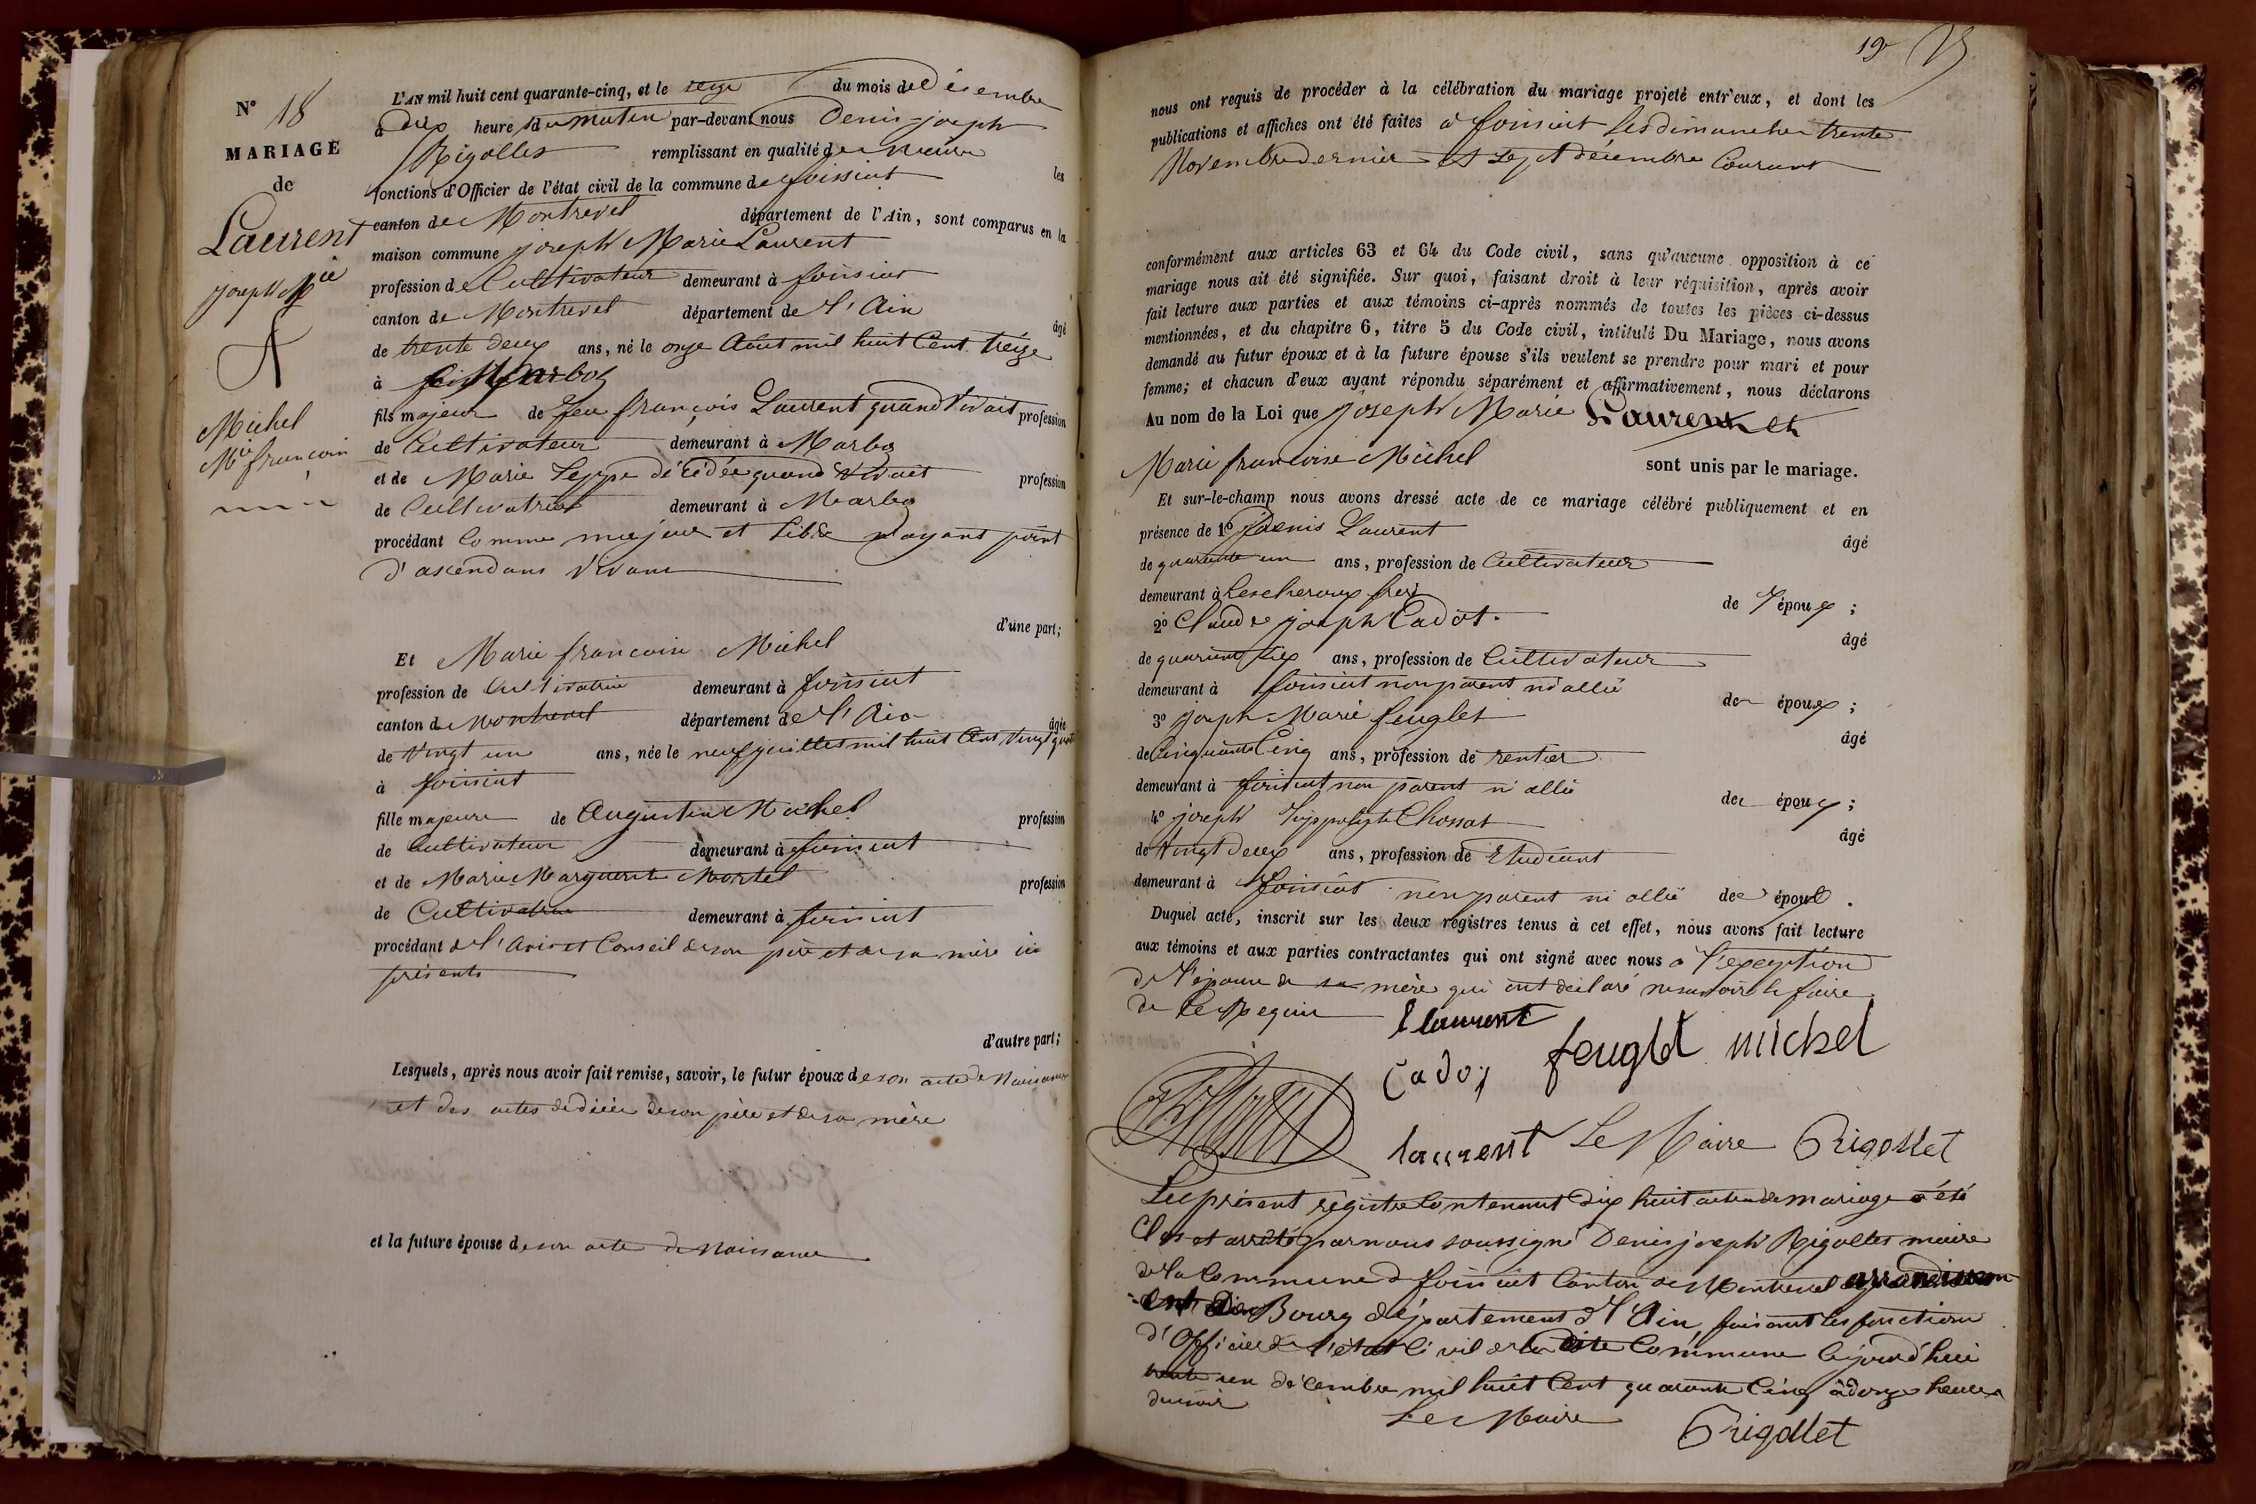 N° 18
MARIAGE
de
Laurent
joseph Mie
&
Michel
Mie francoise
L'AN mil huit cent quarante-cinq, et le seize du mois de Décembre
à dix heure du matin par-devant nous Denis-joseph
Rigollet remplissant en qualité de maire les
fonctions d'Officier de l'état civil de la commune de foissiat
canton de Montrevel département de l'Ain, sont comparus en la
maison commune joseph Marie Laurent
profession de Cultivateur demeurant à foissiat
canton de Montrevel département de l'Ain âgé
de trente deux ans, né le onze Aout mil huit Cent treize
à Marboz
fils majeur de feu françois Laurent quand vivait profession
de Cultivateur demeurant à Marboz
et de Marie décédée quand vivait profession
de Cultivatrice demeurant à Marboz
procédant Comme majeur et libre n'ayant point
d'ascendans vivans
d'une part;
Et Marie francoise Michel
profession de Cultivatrice demeurant à foissiat
canton de Montrevel département de l'Ain âgée
de vingt un ans, née le neuf juillet mil huit Cent vingt quatre
à foissiat
fille majeure de Augustin Michel profession
de Cultivateur demeurant à foissiat
et de Marie Marguerite Mortel profession
de Cultivatrice demeurant à foissiat
procédant de l'avis et Conseil de son père et de sa mère ici
présents
d'autre part;
Lesquels, après nous avoir fait remise, savoir, le futur époux de son acte de Naissance
et des actes de décès de son père et de sa mère
et la future épouse de son acte de Naissance
19
nous ont requis de procéder à la célébration du mariage projeté entr'eux, et dont les
publications et affiches ont été faites à foissiat les dimanches trente
Novembre dernier et sept décembre Courant
conformément aux articles 63 et 64 du Code civil, sans qu'aucune opposition à ce
mariage nous ait été signifiée. Sur quoi, faisant droit à leur réquisition, après avoir
fait lecture aux parties et aux témoins ci-après nommés de toutes les pièces ci-dessus
mentionnées, et du chapitre 6, titre 5 du Code civil, intitulé Du Mariage, nous avons
demandé au futur époux et à la future épouse s'ils veulent se prendre pour mari et pour
femme; et chacun d'eux ayant répondu séparément et affirmativement, nous déclarons
Au nom de la Loi que joseph Marie Laurent et
Marie francoise Michel sont unis par le mariage.
Et sur-le-champ nous avons dressé acte de ce mariage célébré publiquement et en
présence de 1° Denis Laurent âgé
de quarante un ans, profession de Cultivateur
demeurant à Lescheroux frère de l'époux;
2° Claude joseph Cadot. âgé
de quarante six ans, profession de Cultivateur
demeurant à foissiat non parent ni allié des époux;
3° joseph Marie feuglet âgé
de Cinquante Cinq ans, profession de rentier
demeurant à foissiat non parent ni allié des époux;
4° joseph hyppolyte Chossat âgé
de vingt deux ans, profession de Etudiant
demeurant à foissiat non parent ni allié des époux.
Duquel acte, inscrit sur les deux registres tenus à cet effet, nous avons fait lecture
aux témoins et aux parties contractantes qui ont signé avec nous à l'exception
de l'épouse de sa mère qui ont déclaré ne savoir le faire
de ce Requis
l laurent
Cadot feuglet michel
laurent Le Maire Rigollet
Le présent régistre Contenant dix huit actes de mariage a été
Clos et arrêté par nous soussigné Denis joseph Rigollet maire
de la Commune de foissiat Canton de Montrevel arrondissem
ent de Bourg département de l'Ain faisant les fonctions
d'Officier de l'état Civil de la dite Commune cejourd'hui
trente un décembre mil huit Cent quarante Cinq à douze heures
du soir
Le Maire Rigollet